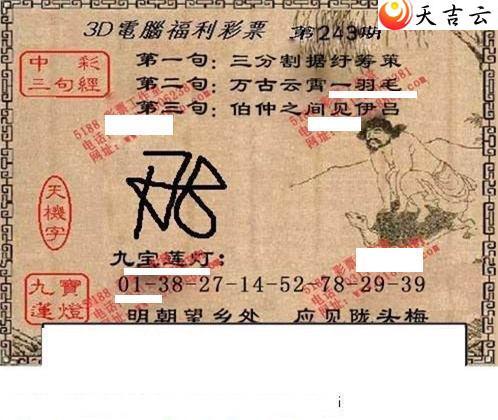 天吉云
3D電腦福利彩票 第243期
中彩
三句經
第一句:三分割据纡筹策
第二句:万古云霄一羽毛
第三句:伯仲之间见伊吕
天機字
九宝莲灯:
九寶蓮燈
01-38-27-14-52-78-29-39
明朝望乡处 应见陇头梅
i